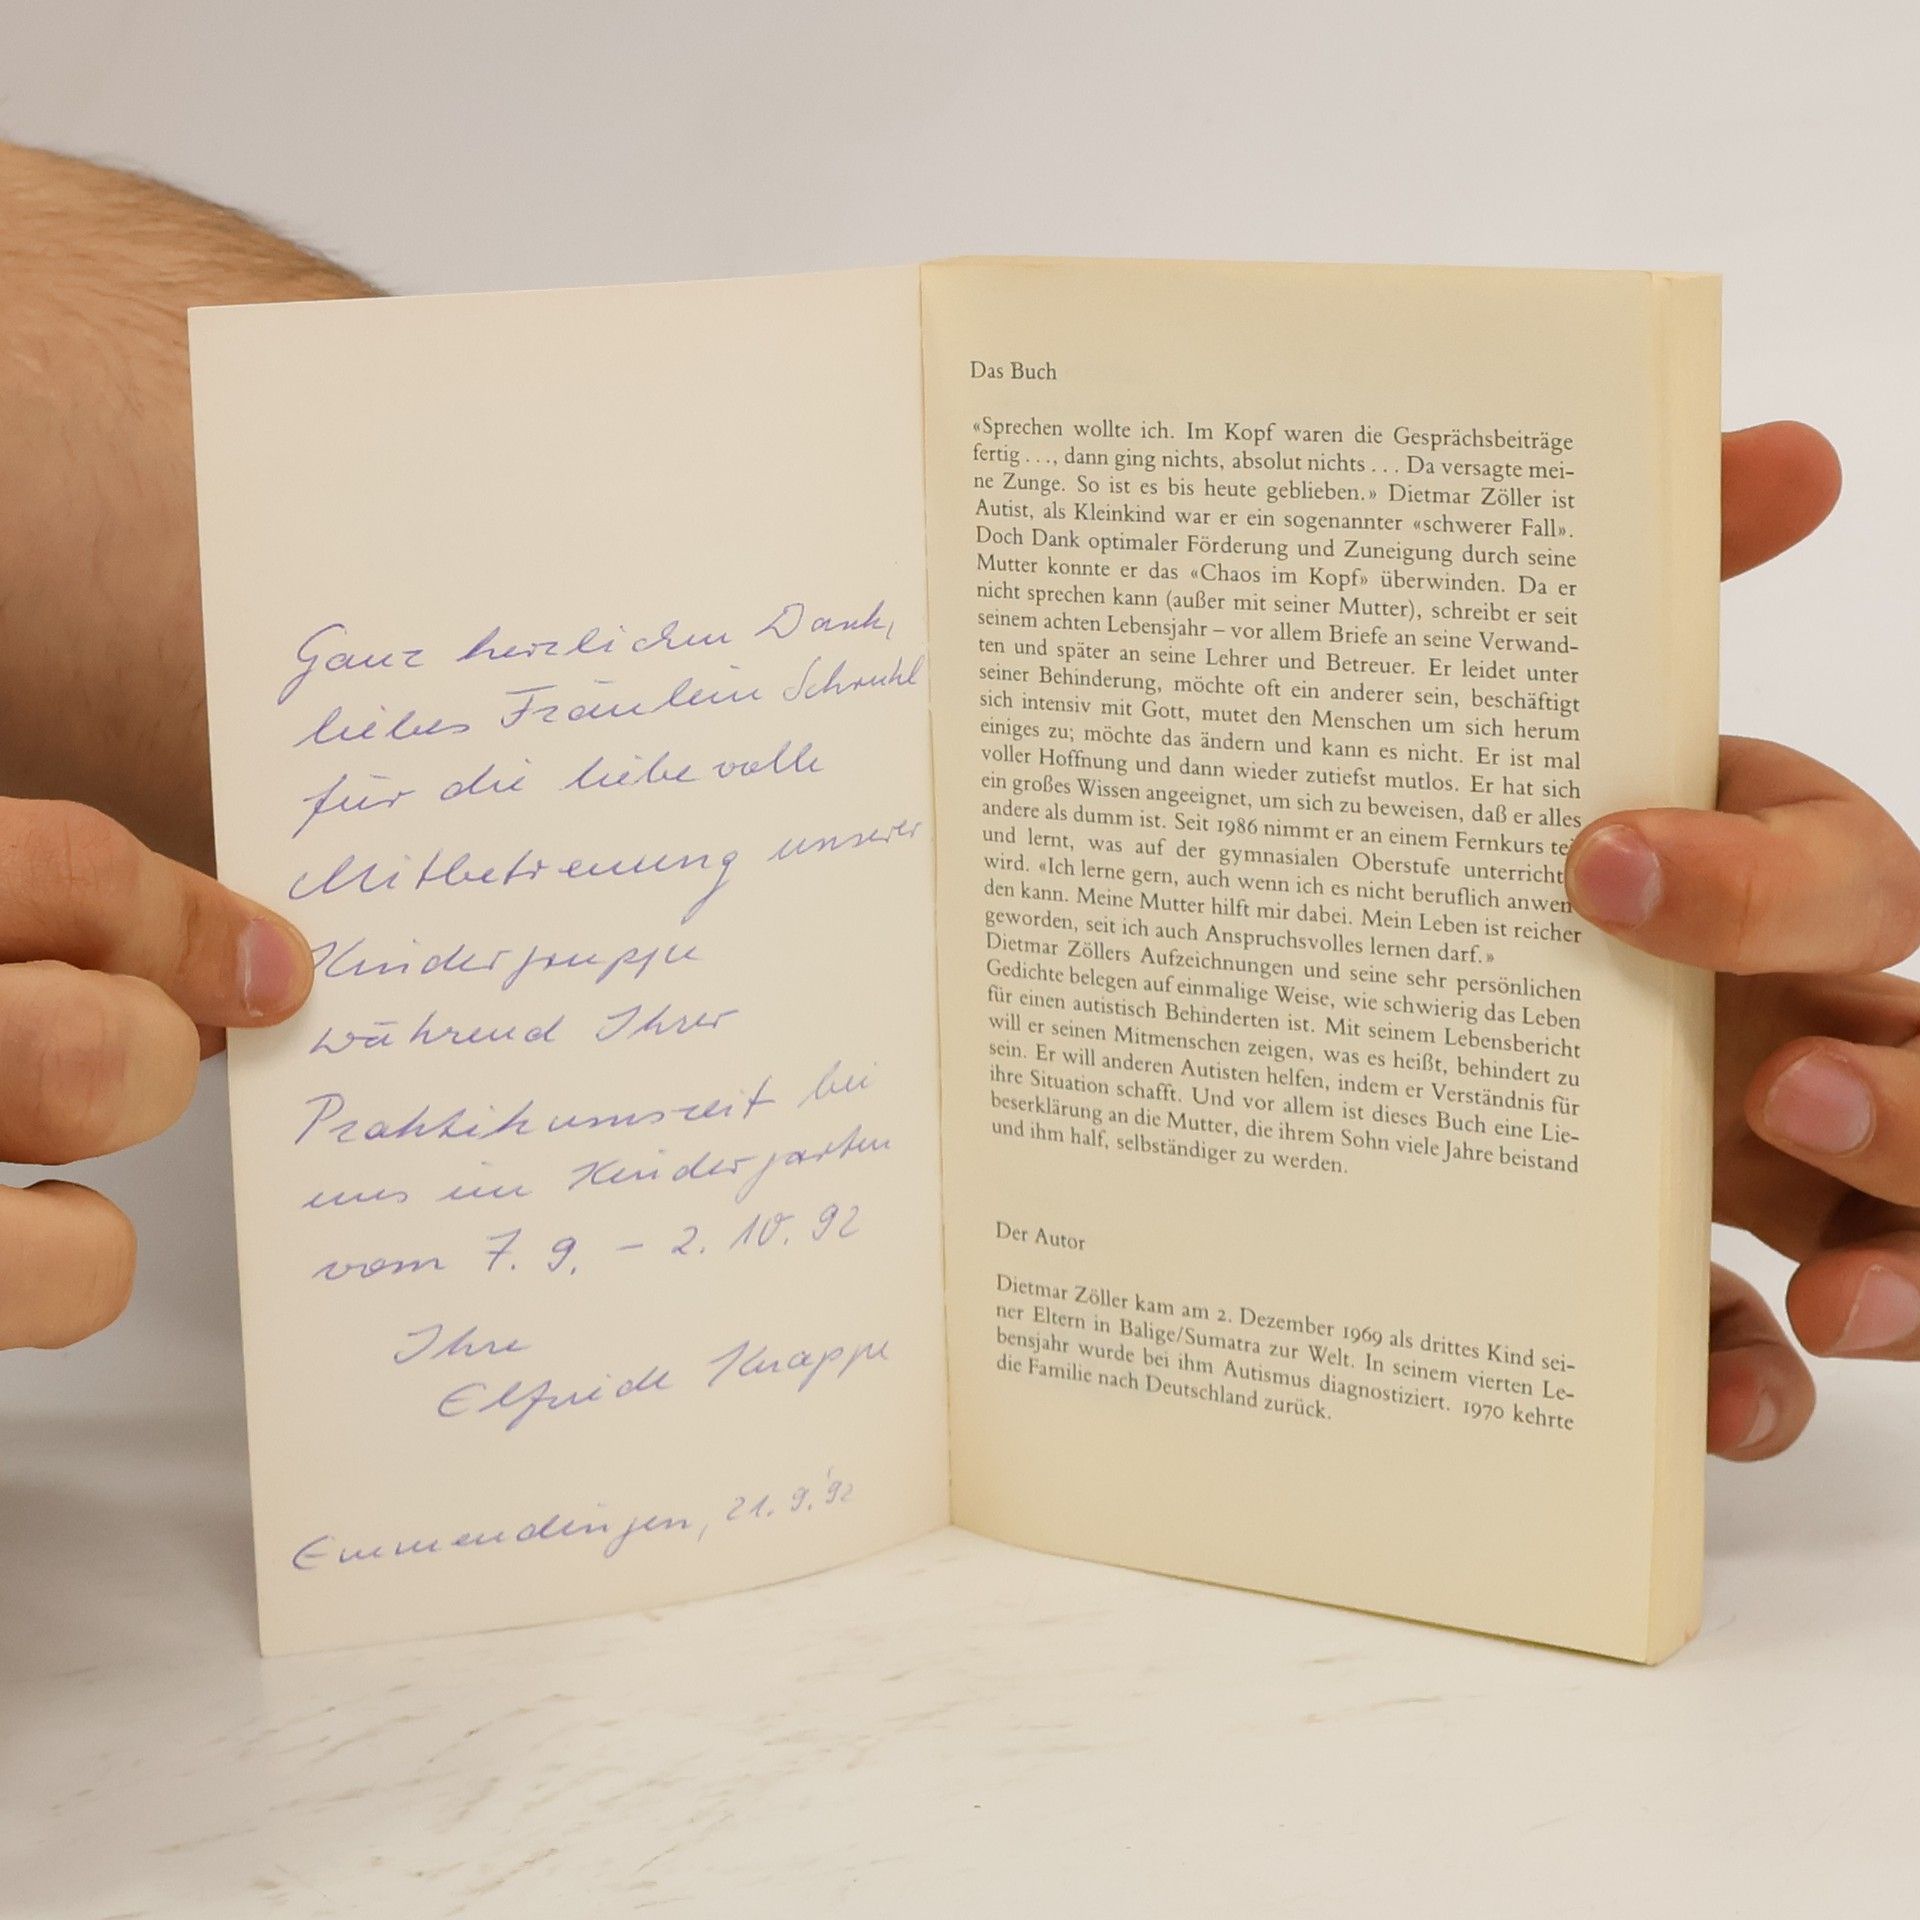 Ganz herzlichen Dank,
liebes Fräulein
für die liebevolle
Mitbetreuung unserer
Kindergruppe
während Ihrer
Praktikumszeit bei
uns im Kindergarten
vom 7. 9. – 2. 10. 92
Ihre
Elfriede Knappe
Emmendingen, 21. 9. '92
Das Buch
«Sprechen wollte ich. Im Kopf waren die Gesprächsbeiträge
fertig . . ., dann ging nichts, absolut nichts . . . Da versagte mei-
ne Zunge. So ist es bis heute geblieben.» Dietmar Zöller ist
Autist, als Kleinkind war er ein sogenannter «schwerer Fall».
Doch Dank optimaler Förderung und Zuneigung durch seine
Mutter konnte er das «Chaos im Kopf» überwinden. Da er
nicht sprechen kann (außer mit seiner Mutter), schreibt er seit
seinem achten Lebensjahr – vor allem Briefe an seine Verwand-
ten und später an seine Lehrer und Betreuer. Er leidet unter
seiner Behinderung, möchte oft ein anderer sein, beschäftigt
sich intensiv mit Gott, mutet den Menschen um sich herum
einiges zu; möchte das ändern und kann es nicht. Er ist mal
voller Hoffnung und dann wieder zutiefst mutlos. Er hat sich
ein großes Wissen angeeignet, um sich zu beweisen, daß er alles
andere als dumm ist. Seit 1986 nimmt er an einem Fernkurs tei
und lernt, was auf der gymnasialen Oberstufe unterricht
wird. «Ich lerne gern, auch wenn ich es nicht beruflich anwen
den kann. Meine Mutter hilft mir dabei. Mein Leben ist reicher
geworden, seit ich auch Anspruchsvolles lernen darf.»
Dietmar Zöllers Aufzeichnungen und seine sehr persönlichen
Gedichte belegen auf einmalige Weise, wie schwierig das Leben
für einen autistisch Behinderten ist. Mit seinem Lebensbericht
will er seinen Mitmenschen zeigen, was es heißt, behindert zu
sein. Er will anderen Autisten helfen, indem er Verständnis für
ihre Situation schafft. Und vor allem ist dieses Buch eine Lie-
beserklärung an die Mutter, die ihrem Sohn viele Jahre beistand
und ihm half, selbständiger zu werden.
Der Autor
Dietmar Zöller kam am 2. Dezember 1969 als drittes Kind sei-
ner Eltern in Balige/Sumatra zur Welt. In seinem vierten Le-
bensjahr wurde bei ihm Autismus diagnostiziert. 1970 kehrte
die Familie nach Deutschland zurück.